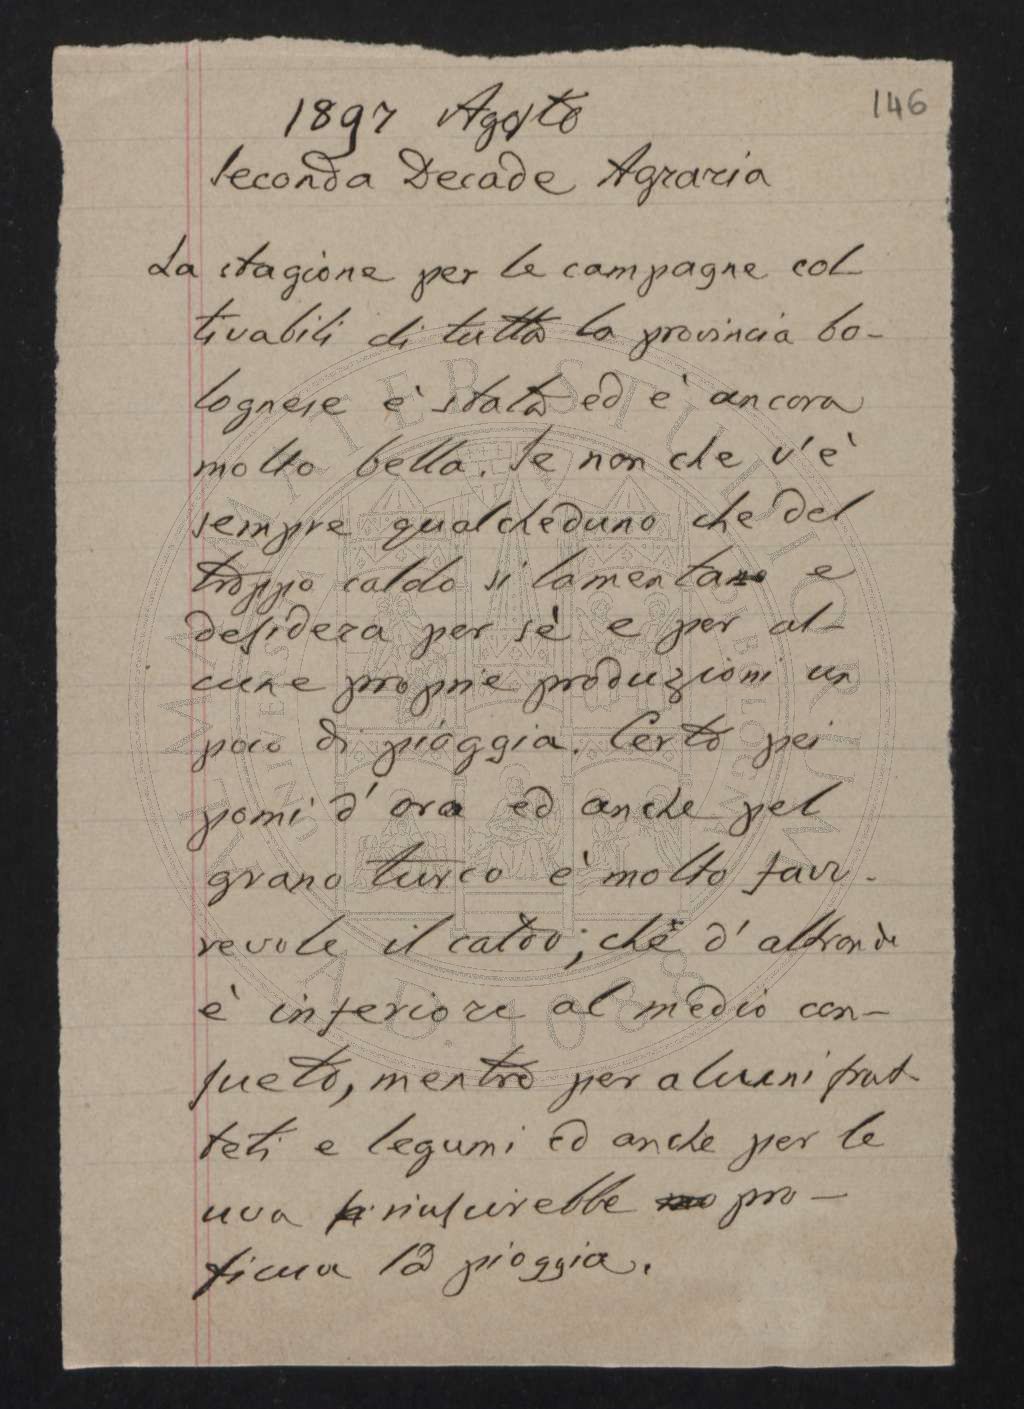 146
1897 Agosto
Seconda Decade Agraria
La stagione per le campagne col
tivabili di tutta la provincia bo-
lognese è stata ed è ancora
molto bella. Se non che v'è
sempre qualcheduno che del
troppo caldo si lamenta e
desidera per sè e per al-
cune proprie produzioni un
poco di pioggia. Certo pei
pomi d'oro ed anche pel
grano turco è molto favo-
revole il caldo; che d'altronde
è inferiore al medio con-
sueto, mentre per alcuni frut-
teti e legumi ed anche per le
uva riuscirebbe pro-
ficua la pioggia.
ALMA MATER STUDIORUM
A.D. 1088